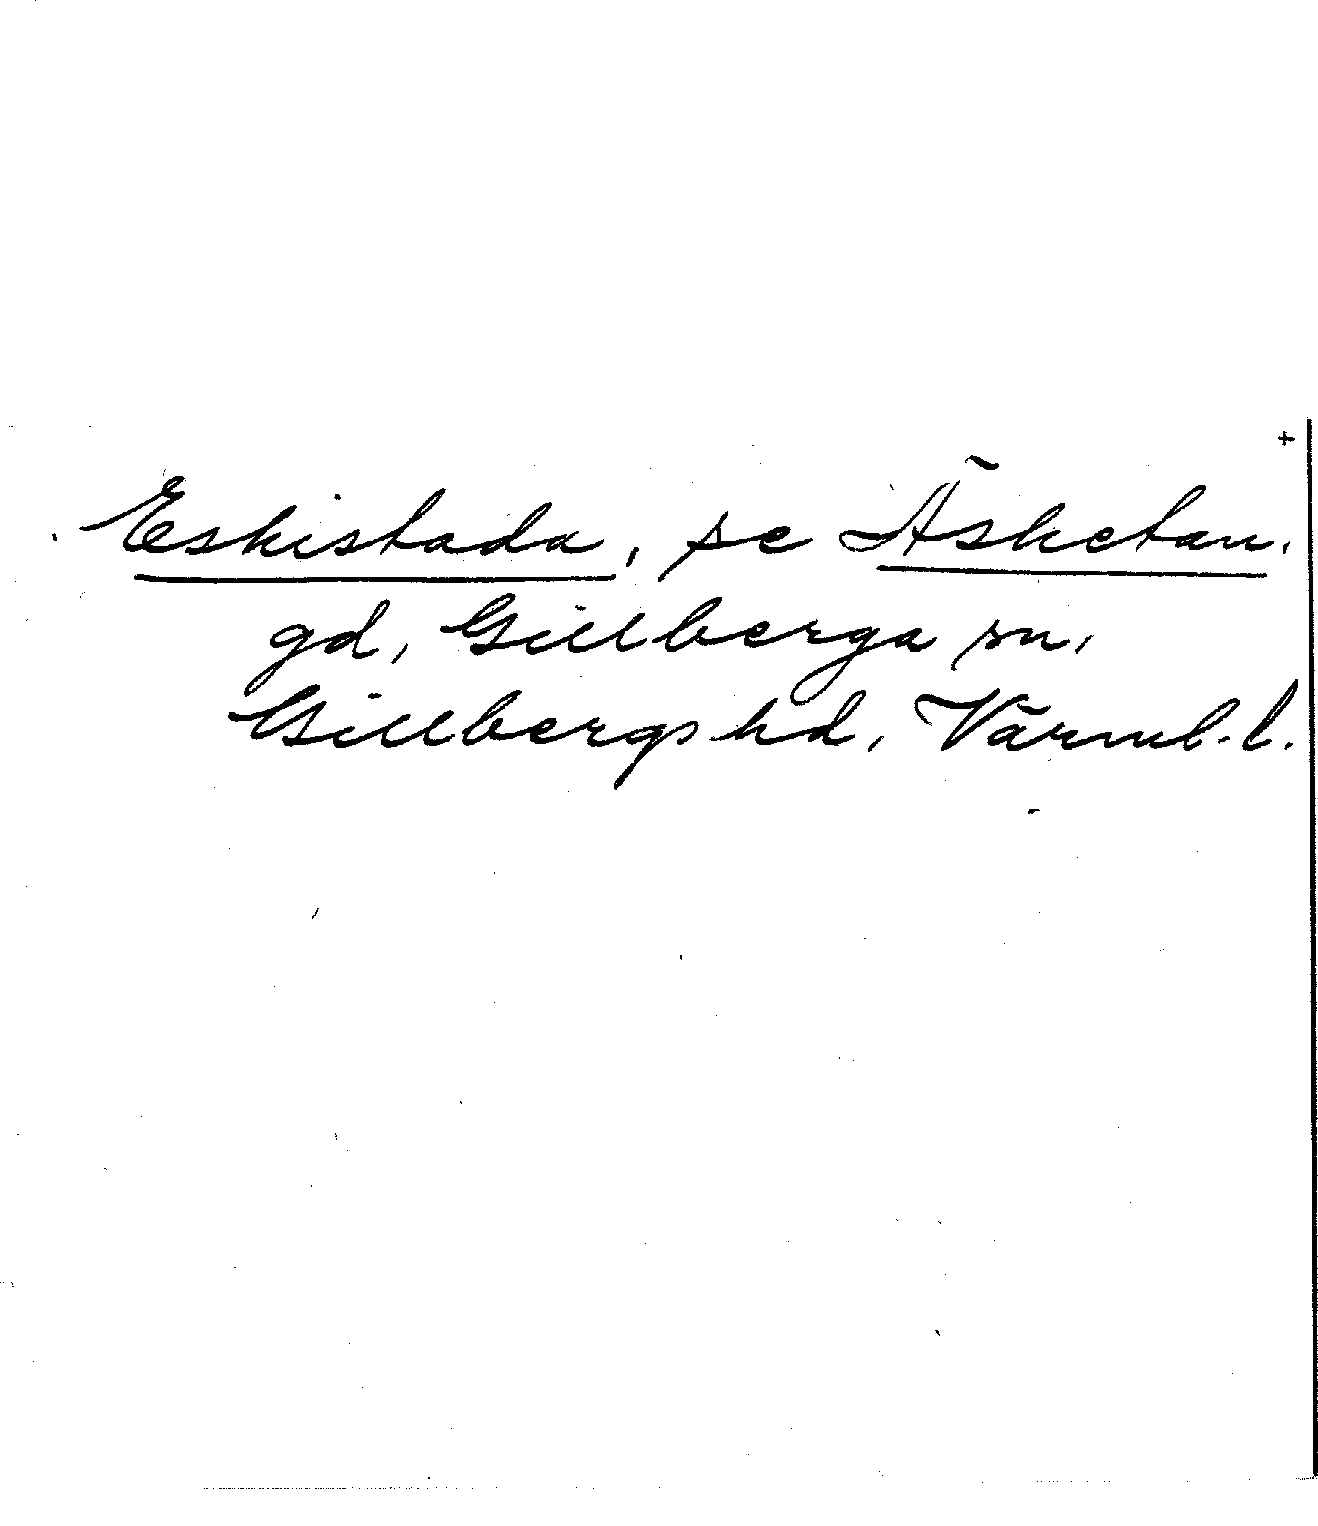 +
Eskistada, se Äsketan.
gd, Gillberga sn,
Gillbergs hd, Värml. l.